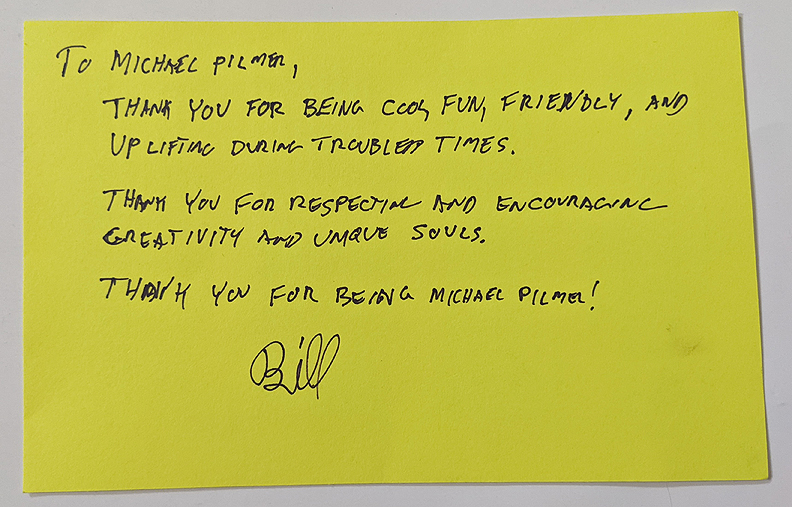 TO MICHAEL PILMER,
THANK YOU FOR BEING COOL, FUN, FRIENDLY, AND
UPLIFTING DURING TROUBLED TIMES.
THANK YOU FOR RESPECTING AND ENCOURAGING
CREATIVITY AND UNIQUE SOULS.
THANK YOU FOR BEING MICHAEL PILMER!
Bill